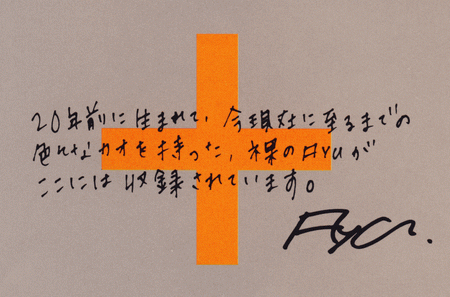 20年前に生まれて、今現在に至るまでの
色んなカオを持った、裸のAyuが
ここには収録されています。
Ayu.